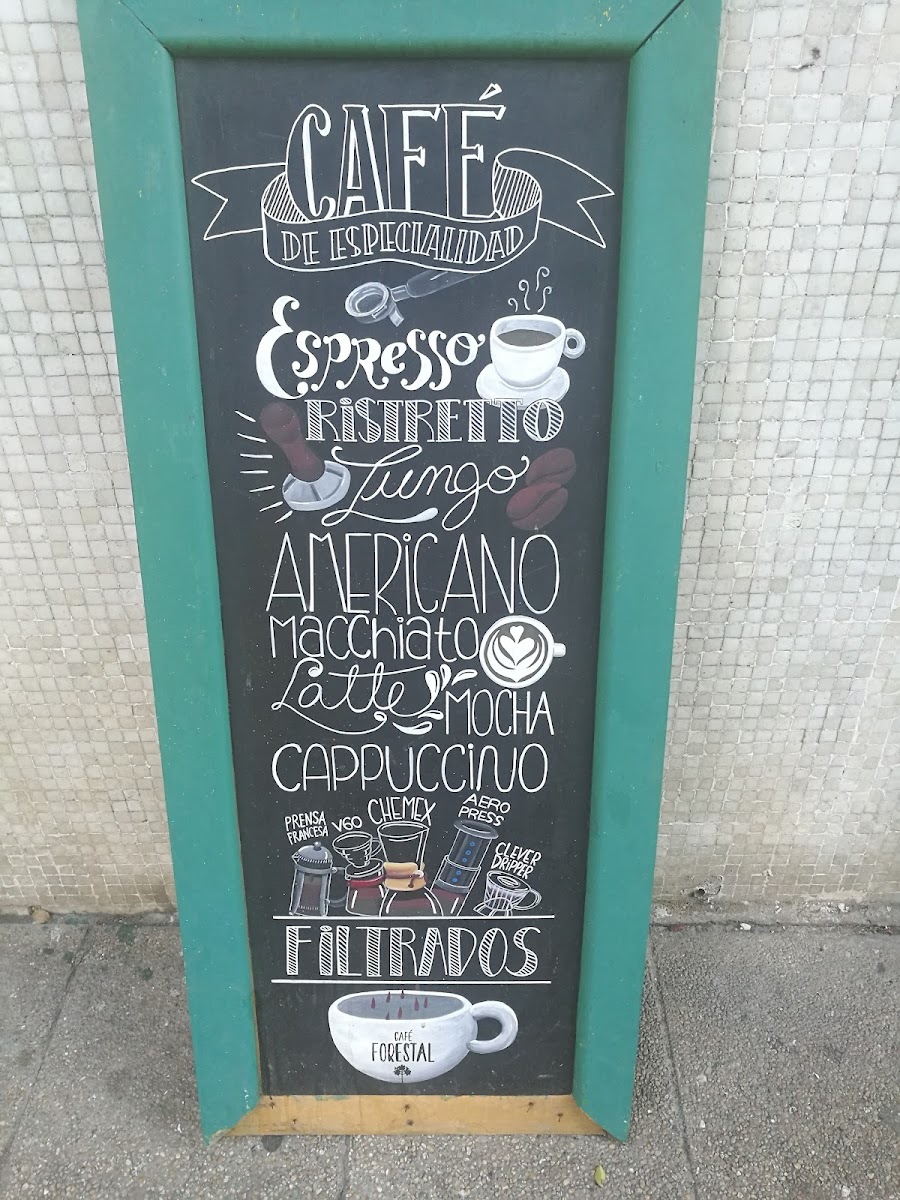 CAFÉ
DE ESPECIALIDAD
Espresso
RiSTRETTO
Lungo
AMERiCANO
Macchiato
Latte
MOCHA
CAPPUCCiNO
PRENSA
FRANCESA
V60
CHEMEX
AERO
PRESS
CLEVER
DRiPPER
FiLTRADOS
CAFÉ
FORESTAL